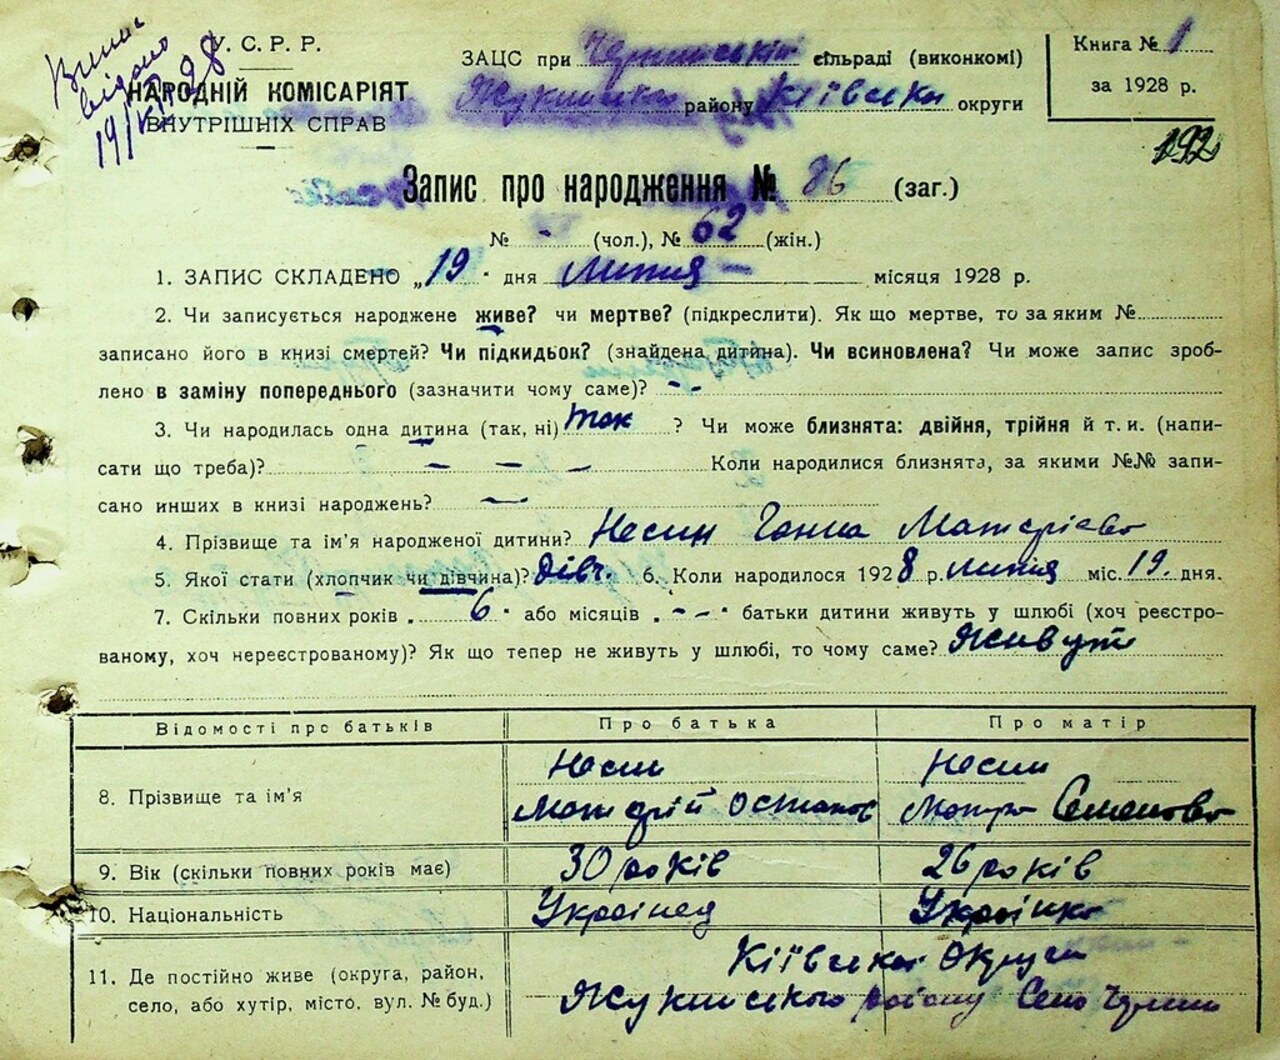 Випис видано 19/VII 28
У. С. Р. Р.
НАРОДНІЙ КОМІСАРІЯТ
ВНУТРІШНІХ СПРАВ
ЗАЦС при сільраді (виконкомі)
району Київської округи
Книга № 1
за 1928 р.
192
Запис про народження № 86 (заг.)
№ - (чол.), № 62 (жін.)
1. ЗАПИС СКЛАДЕНО „19" дня Липня — місяця 1928 р.
2. Чи записується народжене живе? чи мертве? (підкреслити). Як що мертве, то за яким №
записано його в книзі смертей? Чи підкидьок? (знайдена дитина). Чи всиновлена? Чи може запис зроб-
лено в заміну попереднього (зазначити чому саме)? - -
3. Чи народилась одна дитина (так, ні) Так ? Чи може близнята: двійня, трійня й т. и. (напи-
сати що треба)? — — — Коли народилися близнята, за якими №№ запи-
сано инших в книзі народжень? —
4. Прізвище та ім'я народженої дитини? Несин Ганна
5. Якої стати (хлопчик чи дівчина)? дівч. 6. Коли народилося 1928 р. липня міс. 19. дня.
7. Скільки повних років „ 6 " або місяців „ - - " батьки дитини живуть у шлюбі (хоч реєстро-
ваному, хоч нереєстрованому)? Як що тепер не живуть у шлюбі, то чому саме? Живуть
Відомості про батьків Про батька Про матір
8. Прізвище та ім'я Несин Несин
Остапов Семенова
9. Вік (скільки повних років має) 30 років 26 років
10. Національність Українец Українка
11. Де постійно живе (округа, район,
село, або хутір, місто, вул. № буд.) Київська Округа
району Село